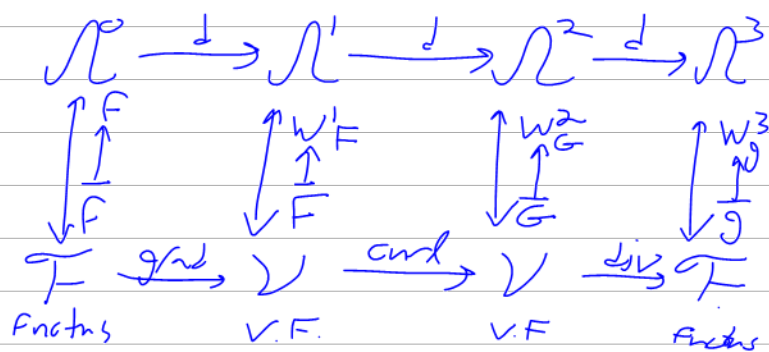 Ω⁰ —d→ Ω¹ —d→ Ω² —d→ Ω³
F W¹F W²G W³g
F F G g
F grad V curl V div F
Functns V.F. V.F Functns